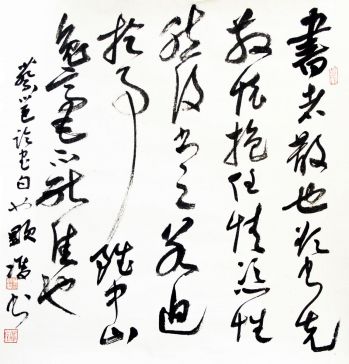 書者散也欲書先
散懷抱任情恣性
然後書之若迫
於事雖中山
兔毫不能佳也
蔡邕論書句